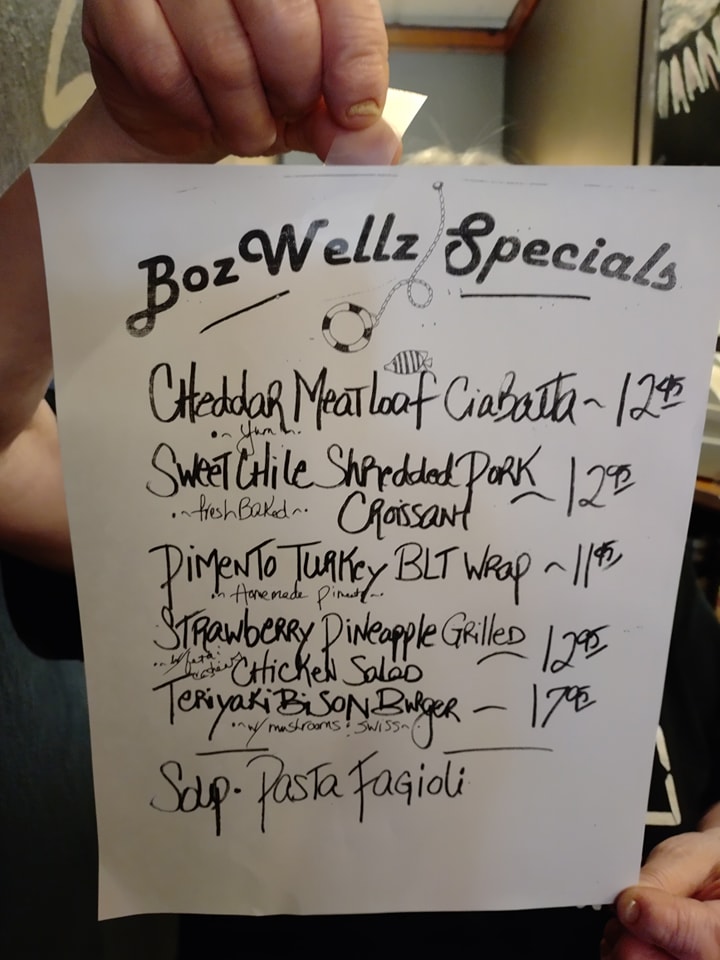 BozWellz Specials
Cheddar Meatloaf Ciabatta ~ 12.95
~ Yum ~
Sweet Chile Shredded Pork
~ fresh Baked ~ Croissant ~ 12.95
Pimento Turkey BLT Wrap ~ 11.95
~ Homemade Pimento ~
Strawberry Pineapple Grilled
w/ feta Chicken Salad ~ 12.95
Teriyaki Bison Burger — 17.95
~ w/ mushrooms & swiss ~
Soup · Pasta Fagioli